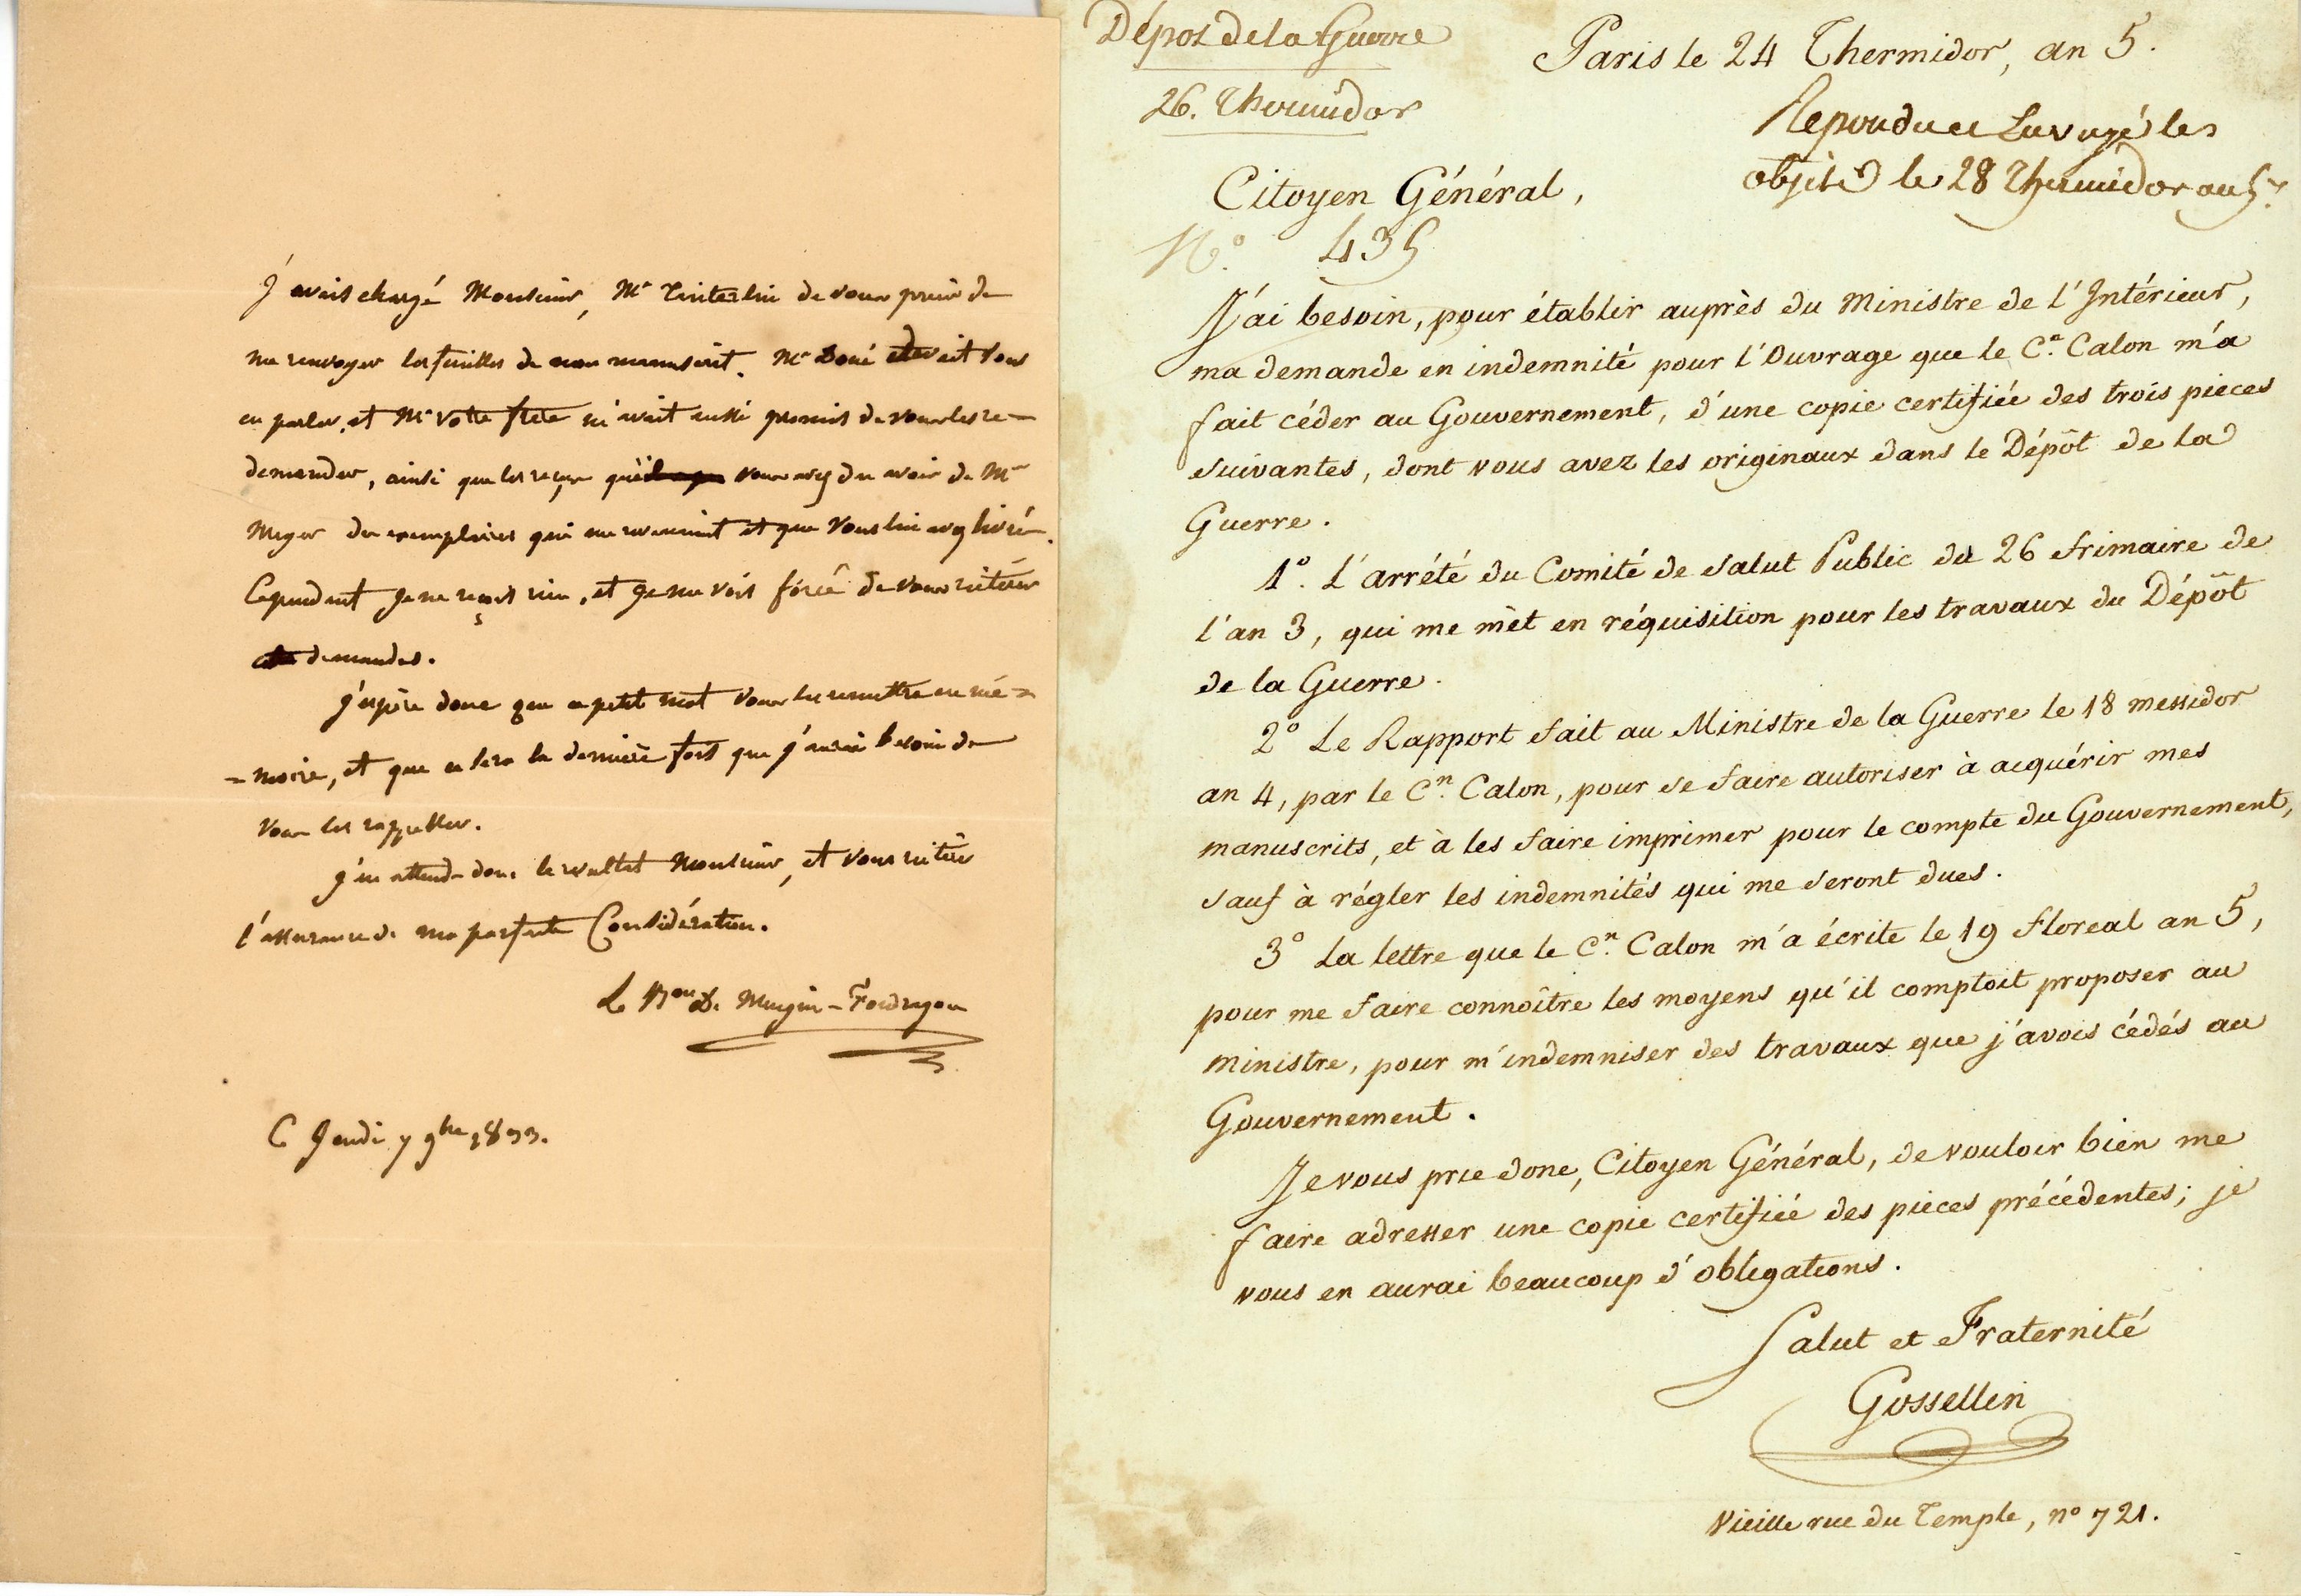 J'avais chargé Monsieur, Mr de vous prier de
me renvoyer les feuilles de mon manuscrit. Mr devait vous
en parler, et Mr votre frère m'avait aussi promis de vous les re-
demander, ainsi que les reçus vous avez du avoir de Mr
des exemplaires qui me revenaient et que vous lui avez livré.
Cependant je ne reçois rien, et je me vois forcé de vous réitérer
demandes.
J'espère donc que ce petit mot vous les remettra en mé-
-moire, et que ce sera la dernière fois que j'aurai besoin de
vous les rappeller.
J'en attends donc le resultat Monsieur, et vous réitère
l'assurance de ma parfaite Considération.
Le Bon De
Ce Jeudi 7 9bre 1833.
Dépot de la Guerre
26. Thermidor
Paris le 24 Thermidor, an 5.
Repondu et Envoyé les
objets le 28 Thermidor an 5.
Citoyen Général,
N.° 435
J'ai besoin, pour établir auprès du Ministre de l'Intérieur,
ma demande en indemnité pour l'Ouvrage que le C.n Calon m'a
fait céder au Gouvernement, d'une copie certifiée des trois pieces
suivantes, dont vous avez les originaux dans le Dépôt de la
Guerre.
1°. L'arrété du Comité de Salut Public du 26 frimaire de
l'an 3, qui me mèt en réquisition pour les travaux du Dépôt
de la Guerre.
2° Le Rapport fait au Ministre de la Guerre le 18 messidor
an 4, par le C.n Calon, pour se faire autoriser à acquérir mes
manuscrits, et à les faire imprimer pour le compte du Gouvernement,
sauf à régler les indemnités qui me seront dues.
3° La lettre que le C.n Calon m'a écrite le 19 floreal an 5,
pour me faire connoître les moyens qu'il comptoit proposer au
ministre, pour m'indemniser des travaux que j'avois cédés au
Gouvernement.
Je vous prie donc, Citoyen Général, de vouloir bien me
faire adresser une copie certifiée des pieces précédentes; je
vous en aurai beaucoup d'obligations.
Salut et Fraternité
Gossellin
Vieille rue du Temple, n° 721.